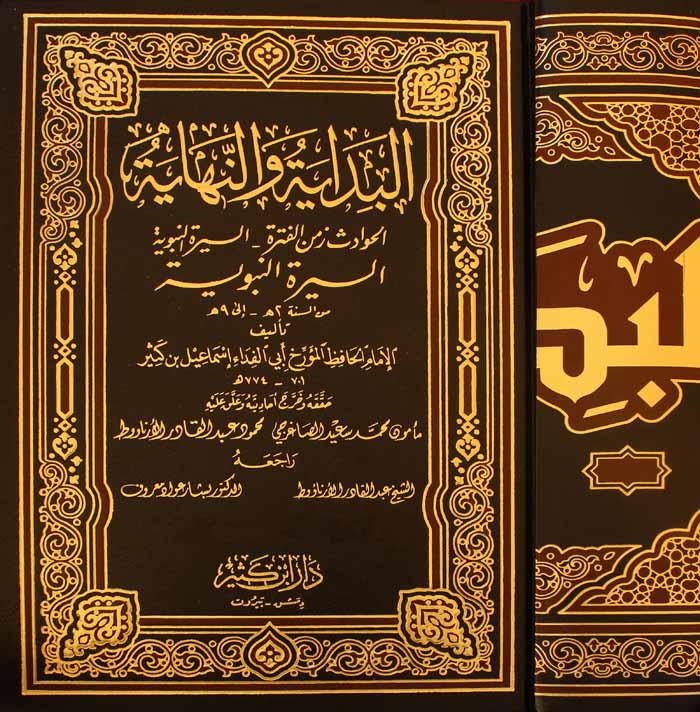 البداية والنهاية
الحوادث زمن الفترة - السيرة النبوية
السيرة النبوية
من السنة ٢هـ - إلى ٩هـ
تأليف
الإمام الحافظ المؤرخ أبي الفداء إسماعيل بن كثير
٧٠١ - ٧٧٤هـ
حققه وخرج أحاديثه وعلق عليه
مأمون محمد سعيد الصاغرجي محمود عبد القادر الأرناؤوط
راجعه
الشيخ عبد القادر الأرناؤوط الدكتور بشار عواد معروف
دار ابن كثير
دمشق - بيروت